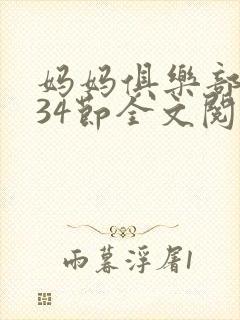 妈妈俱樂部
34節全文閱
雨暮浮屠1